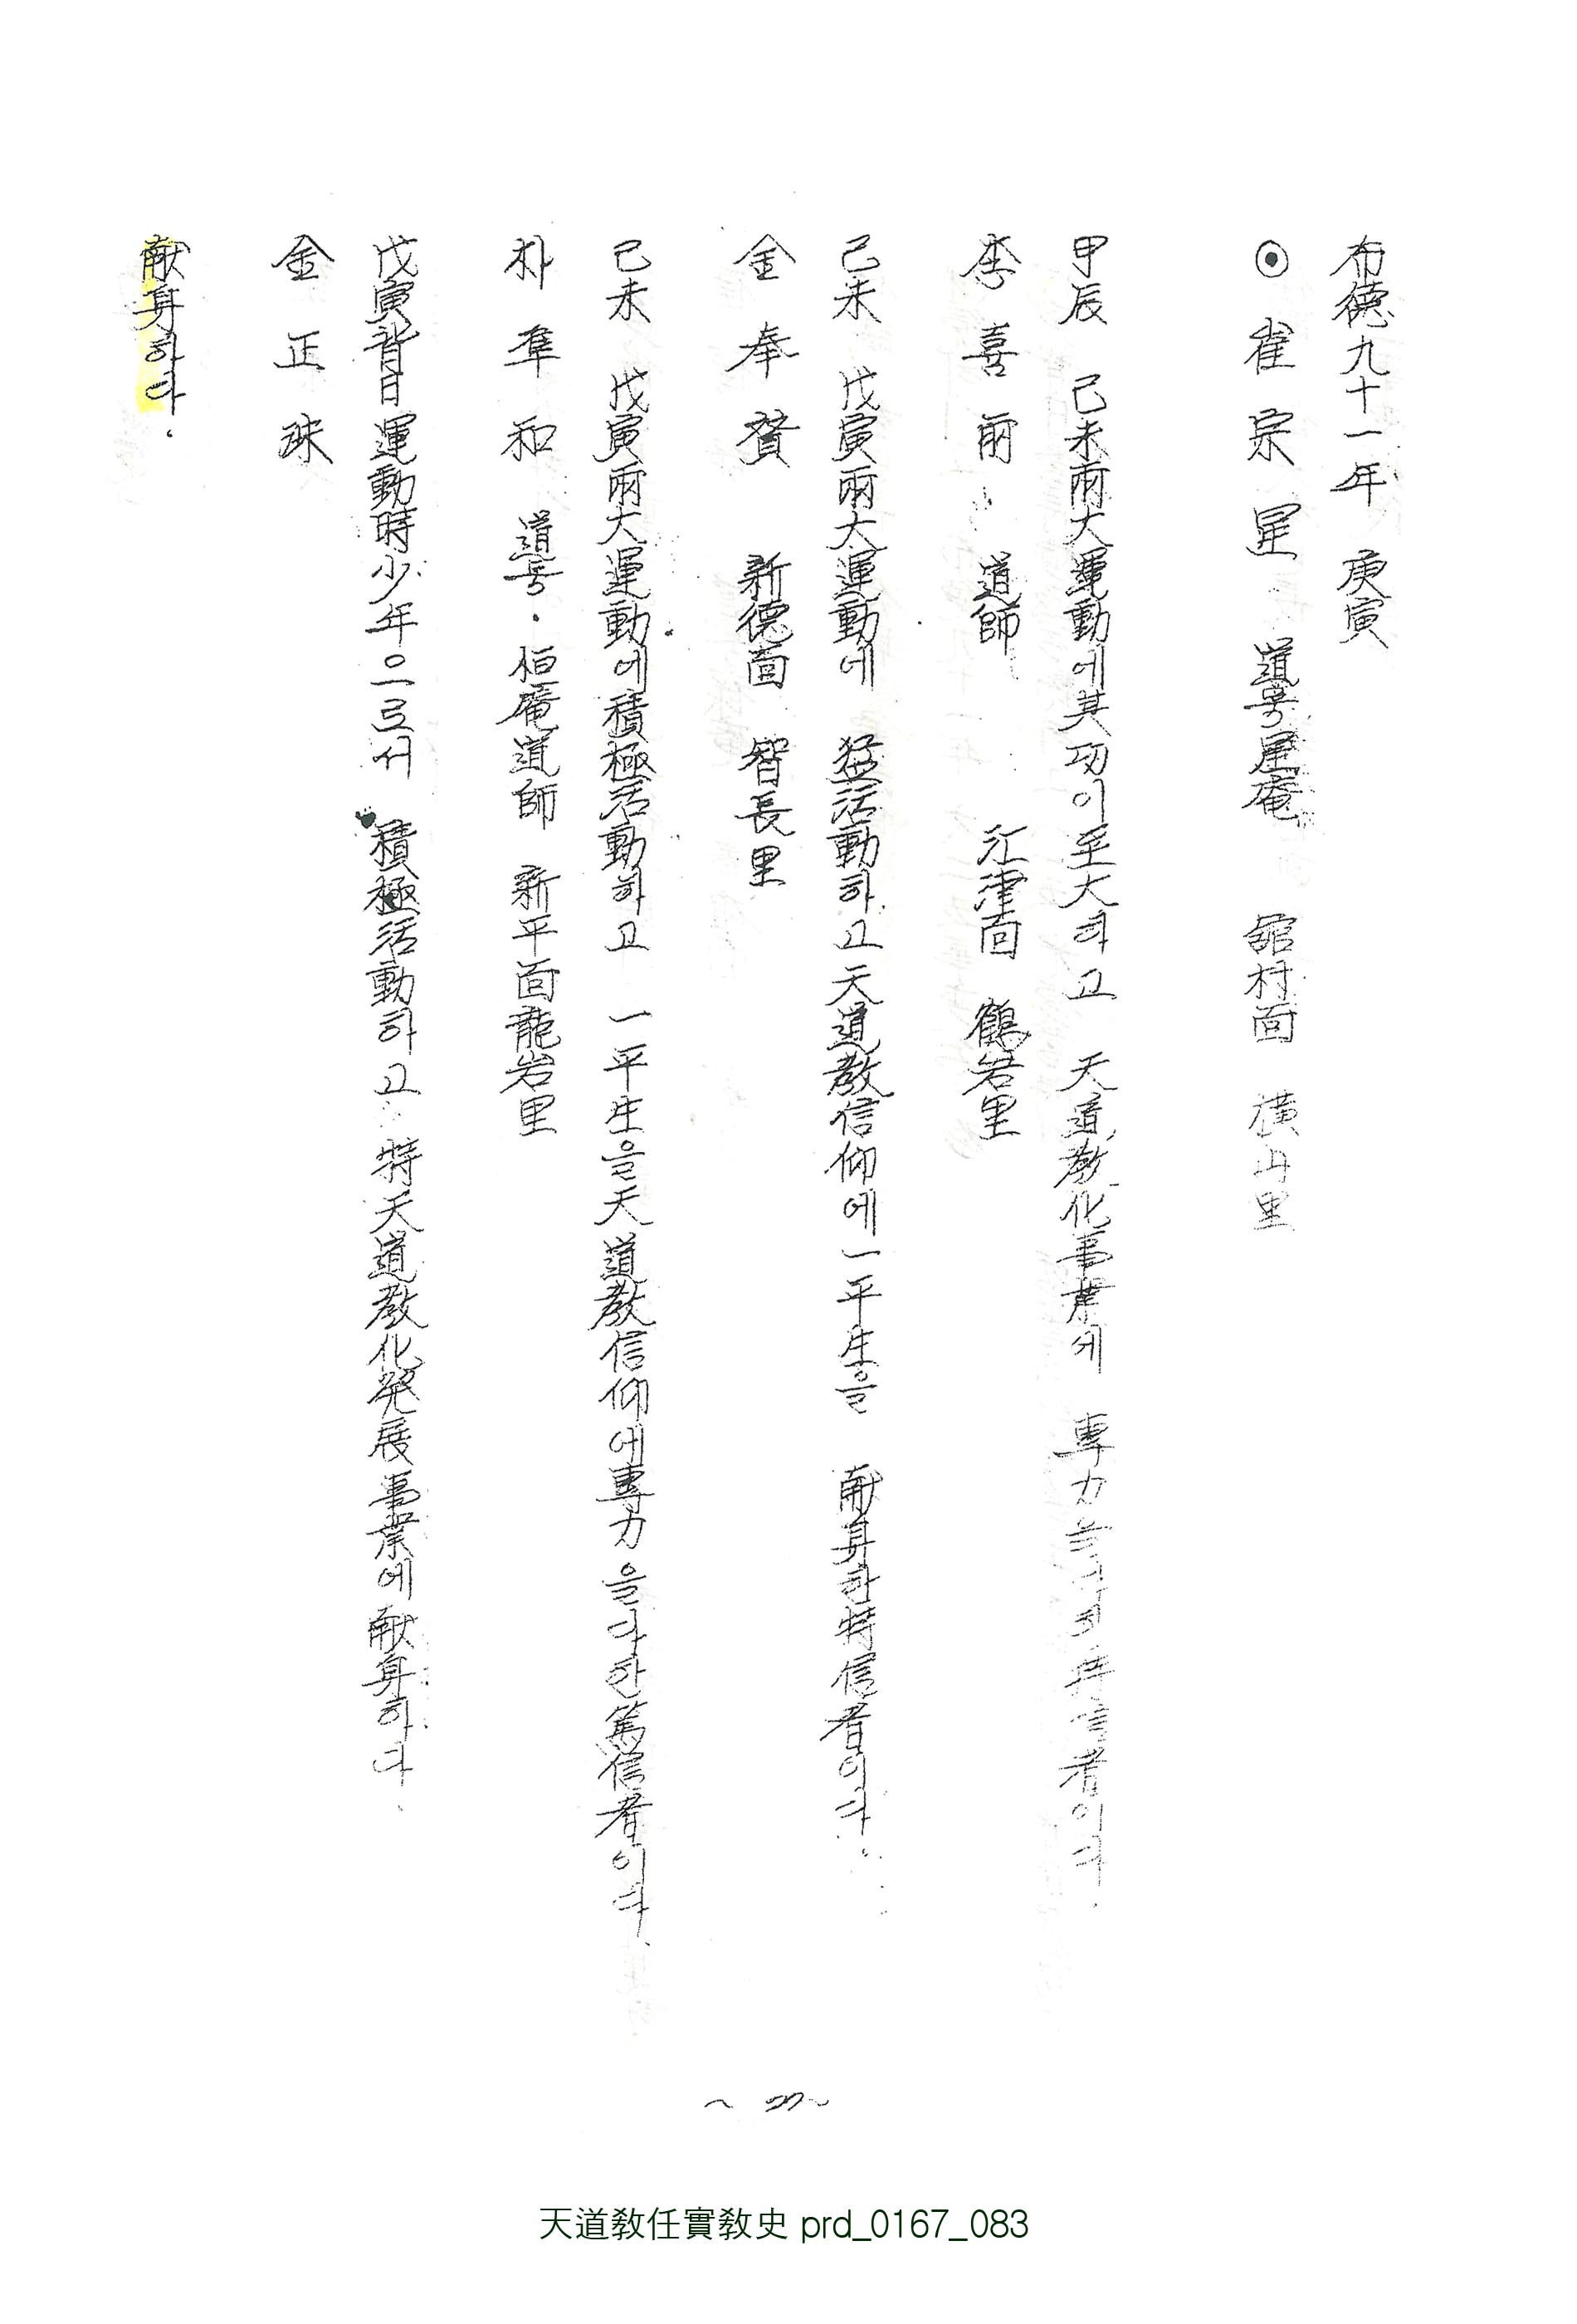 布德九十一年 庚寅
◉ 崔宗星 道号星庵 舘村面 橫山里
甲辰 己未兩大運動에其功이至大하고 天道敎化事業에 專力 者이다.
李喜雨 道師 江津面 鶴岩里
己未 戊寅兩大運動에 猛活動하고天道敎信仰에一平生을 献身한特信者이다.
金奉贊 新德面 智長里
己未 戊寅兩大運動에積極活動하고 一平生을天道敎信仰에專力을다한篤信者이다.
朴準和 道号·恒庵道師 新平面龍岩里
戊寅背日運動時少年으로서 積極活動하고 特天道敎化発展事業에献身하다.
金正珠
献身하다.
天道敎任實敎史 prd_0167_083